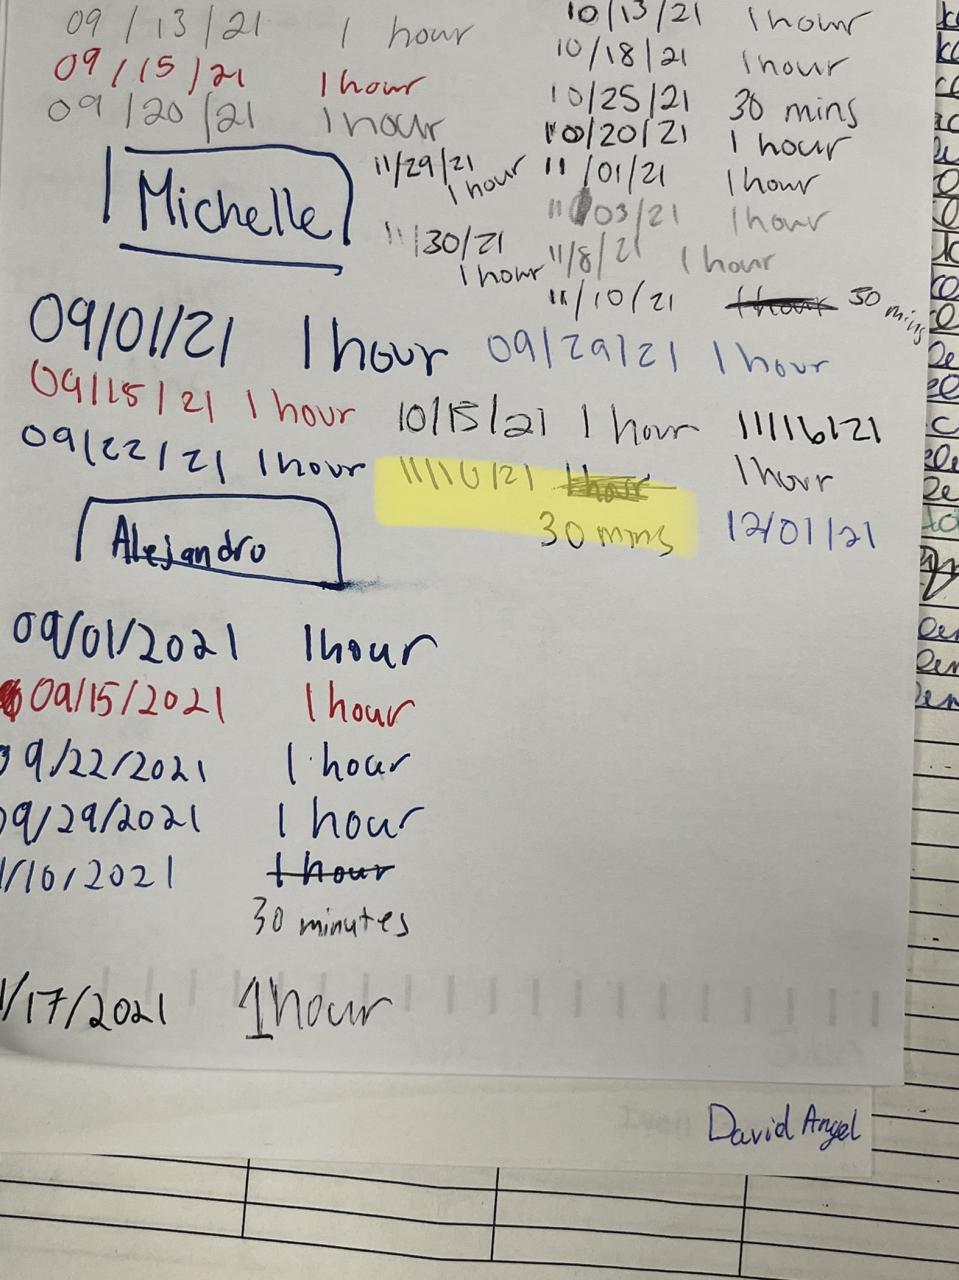 09/13/21 1 hour
09/15/21 1 hour
09/20/21 1 hour
10/13/21 1 hour
10/18/21 1 hour
10/25/21 30 mins
10/20/21 1 hour
11/01/21 1 hour
11/03/21 1 hour
11/8/21 1 hour
11/10/21 1 hour 30 mins
11/29/21
1 hour
11/30/21
1 hour
Michelle
09/01/21 1 hour 09/29/21 1 hour
09/15/21 1 hour 10/15/21 1 hour 11/16/21
09/22/21 1 hour 11/10/21 1 hour 1 hour
30 mins 12/01/21
Alejandro
09/01/2021 1 hour
09/15/2021 1 hour
09/22/2021 1 hour
09/29/2021 1 hour
1/10/2021 1 hour
30 minutes
1/17/2021 1 hour
David Angel